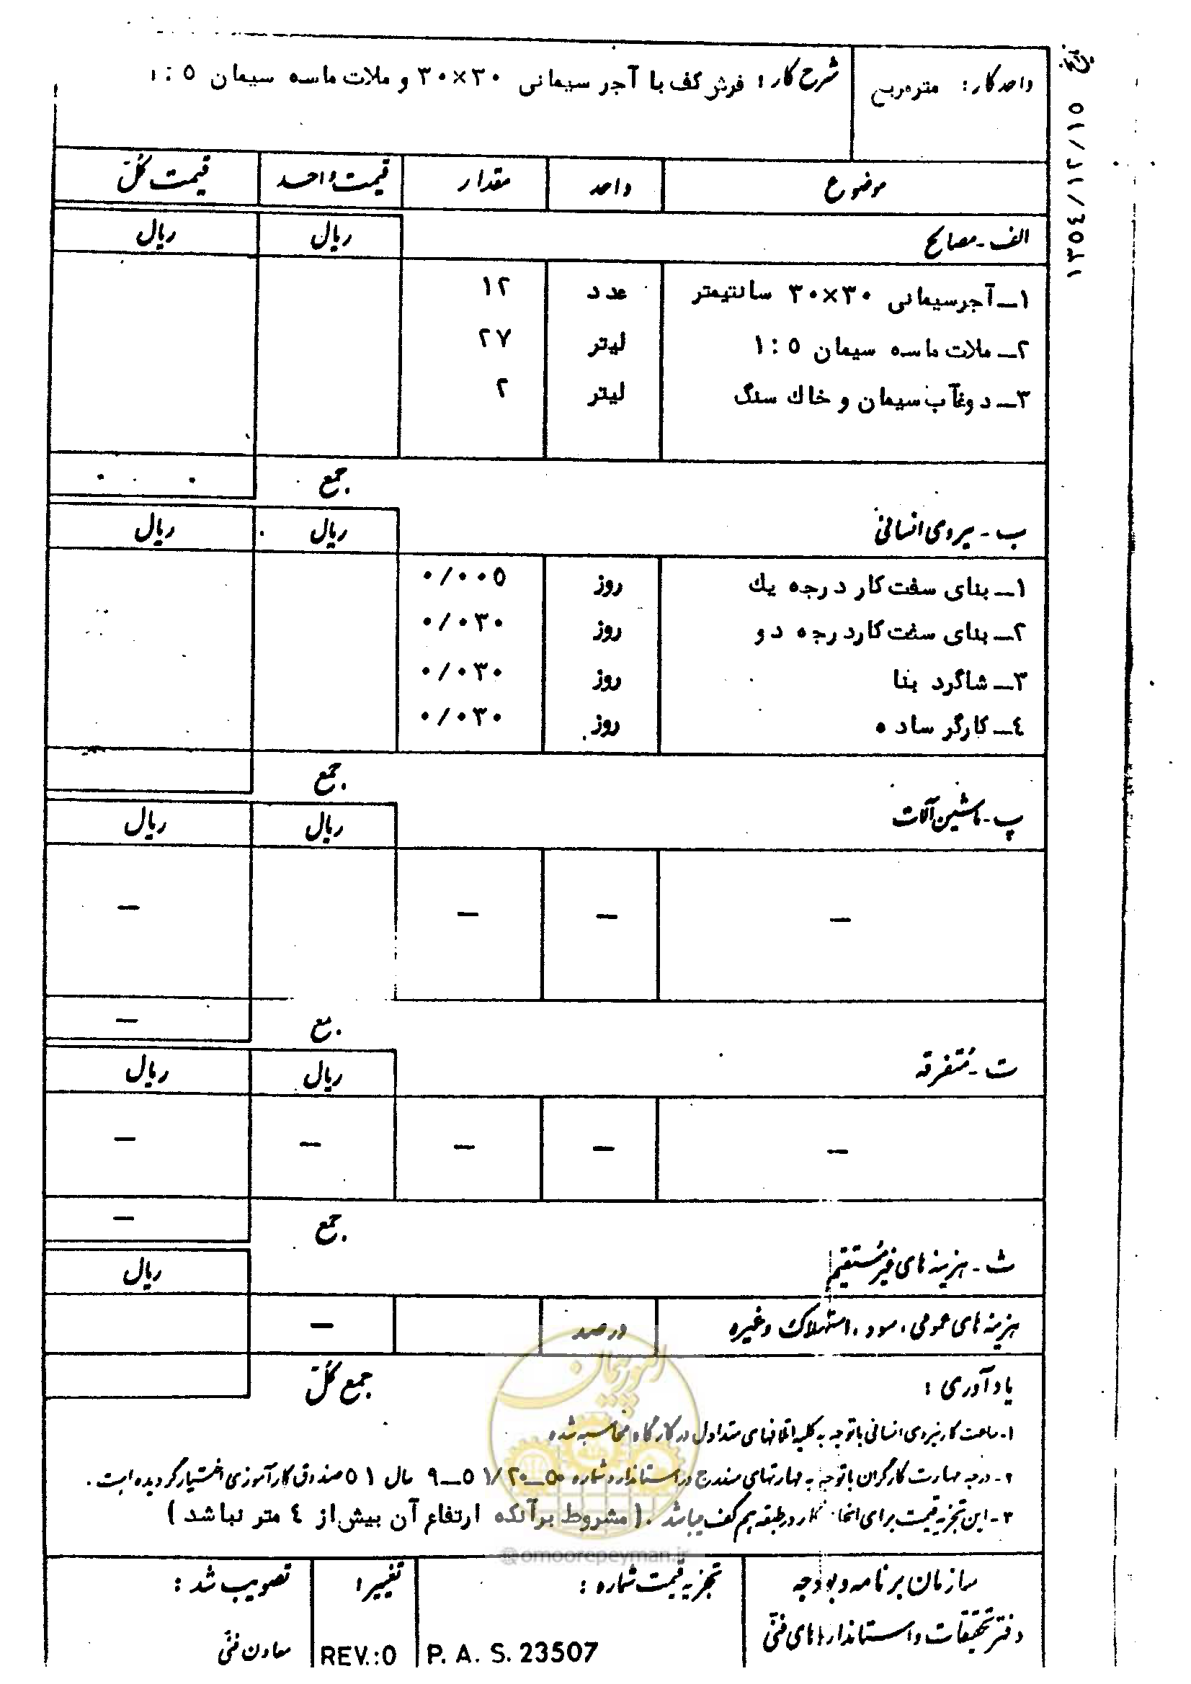 تاریخ ۱۳۵٤/۱۲/۱۵
واحد کار : مترمربع
شرح کار : فرش کف با آجر سیمانی ۳۰×۳۰ و ملات ماسه سیمان ۵ : ۱
موضوع واحد مقدار قیمت واحد قیمت کل
الف - مصالح ریال ریال
۱ـ آجرسیمانی ۳۰×۳۰ سانتیمتر عدد ۱۲
۲ـ ملات ماسه سیمان ۵ : ۱ لیتر ۲۷
۳ـ دوغآب سیمان و خاك سنگ لیتر ۲
جمع
ب - نیروی انسانی ریال ریال
۱ـ بنای سفت کار درجه یك روز ۰/۰۰۵
۲ـ بنای سفت کار درجه دو روز ۰/۰۳۰
۳ـ شاگرد بنا روز ۰/۰۳۰
٤ـ کارگر ساده روز ۰/۰۳۰
جمع
پ - ماشین آلات ریال ریال
— — — —
جمع —
ت - متفرقه ریال ریال
— — — — —
جمع —
ث - هزینه های غیرمستقیم ریال
هزینه های عمومی ، سود ، استهلاک وغیره درصد —
جمع کل
یادآوری :
۱- ساعت کار نیروی انسانی باتوجه به کلیه اتلافهای متداول در کارگاه محاسبه شده
۲- درجه مهارت کارگران باتوجه به مهارتهای مندرج در استاندارد شماره ۵۰ــ۵۱/۲۰ــ۹ سال ۵۱ صندوق کارآموزی اختیار گردیده است .
۳- این تجزیه قیمت برای انجام کار در طبقه هم کف میباشد . ( مشروط برآنکه ارتفاع آن بیش از ٤ متر نباشد )
امور پیمان
@omoorepeyman.ir
سازمان برنامه و بودجه
دفتر تحقیقات و استانداردهای فنی
تجزیه قیمت شماره :
P. A. S. 23507
تغییر :
REV.:0
تصویب شد :
معاون فنی